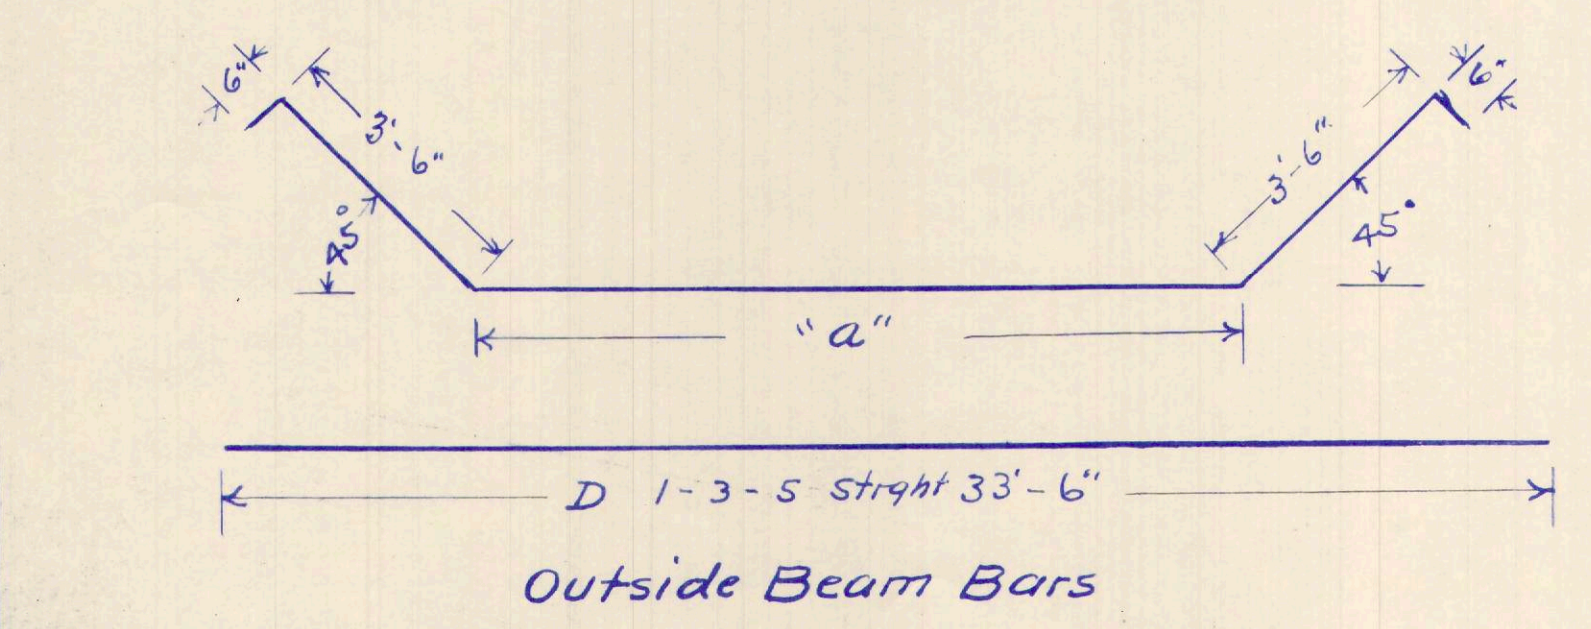 6" 6"
3'-6" 3'-6"
45° 45°
"a"
D 1-3-5 Strght 33'-6"
Outside Beam Bars